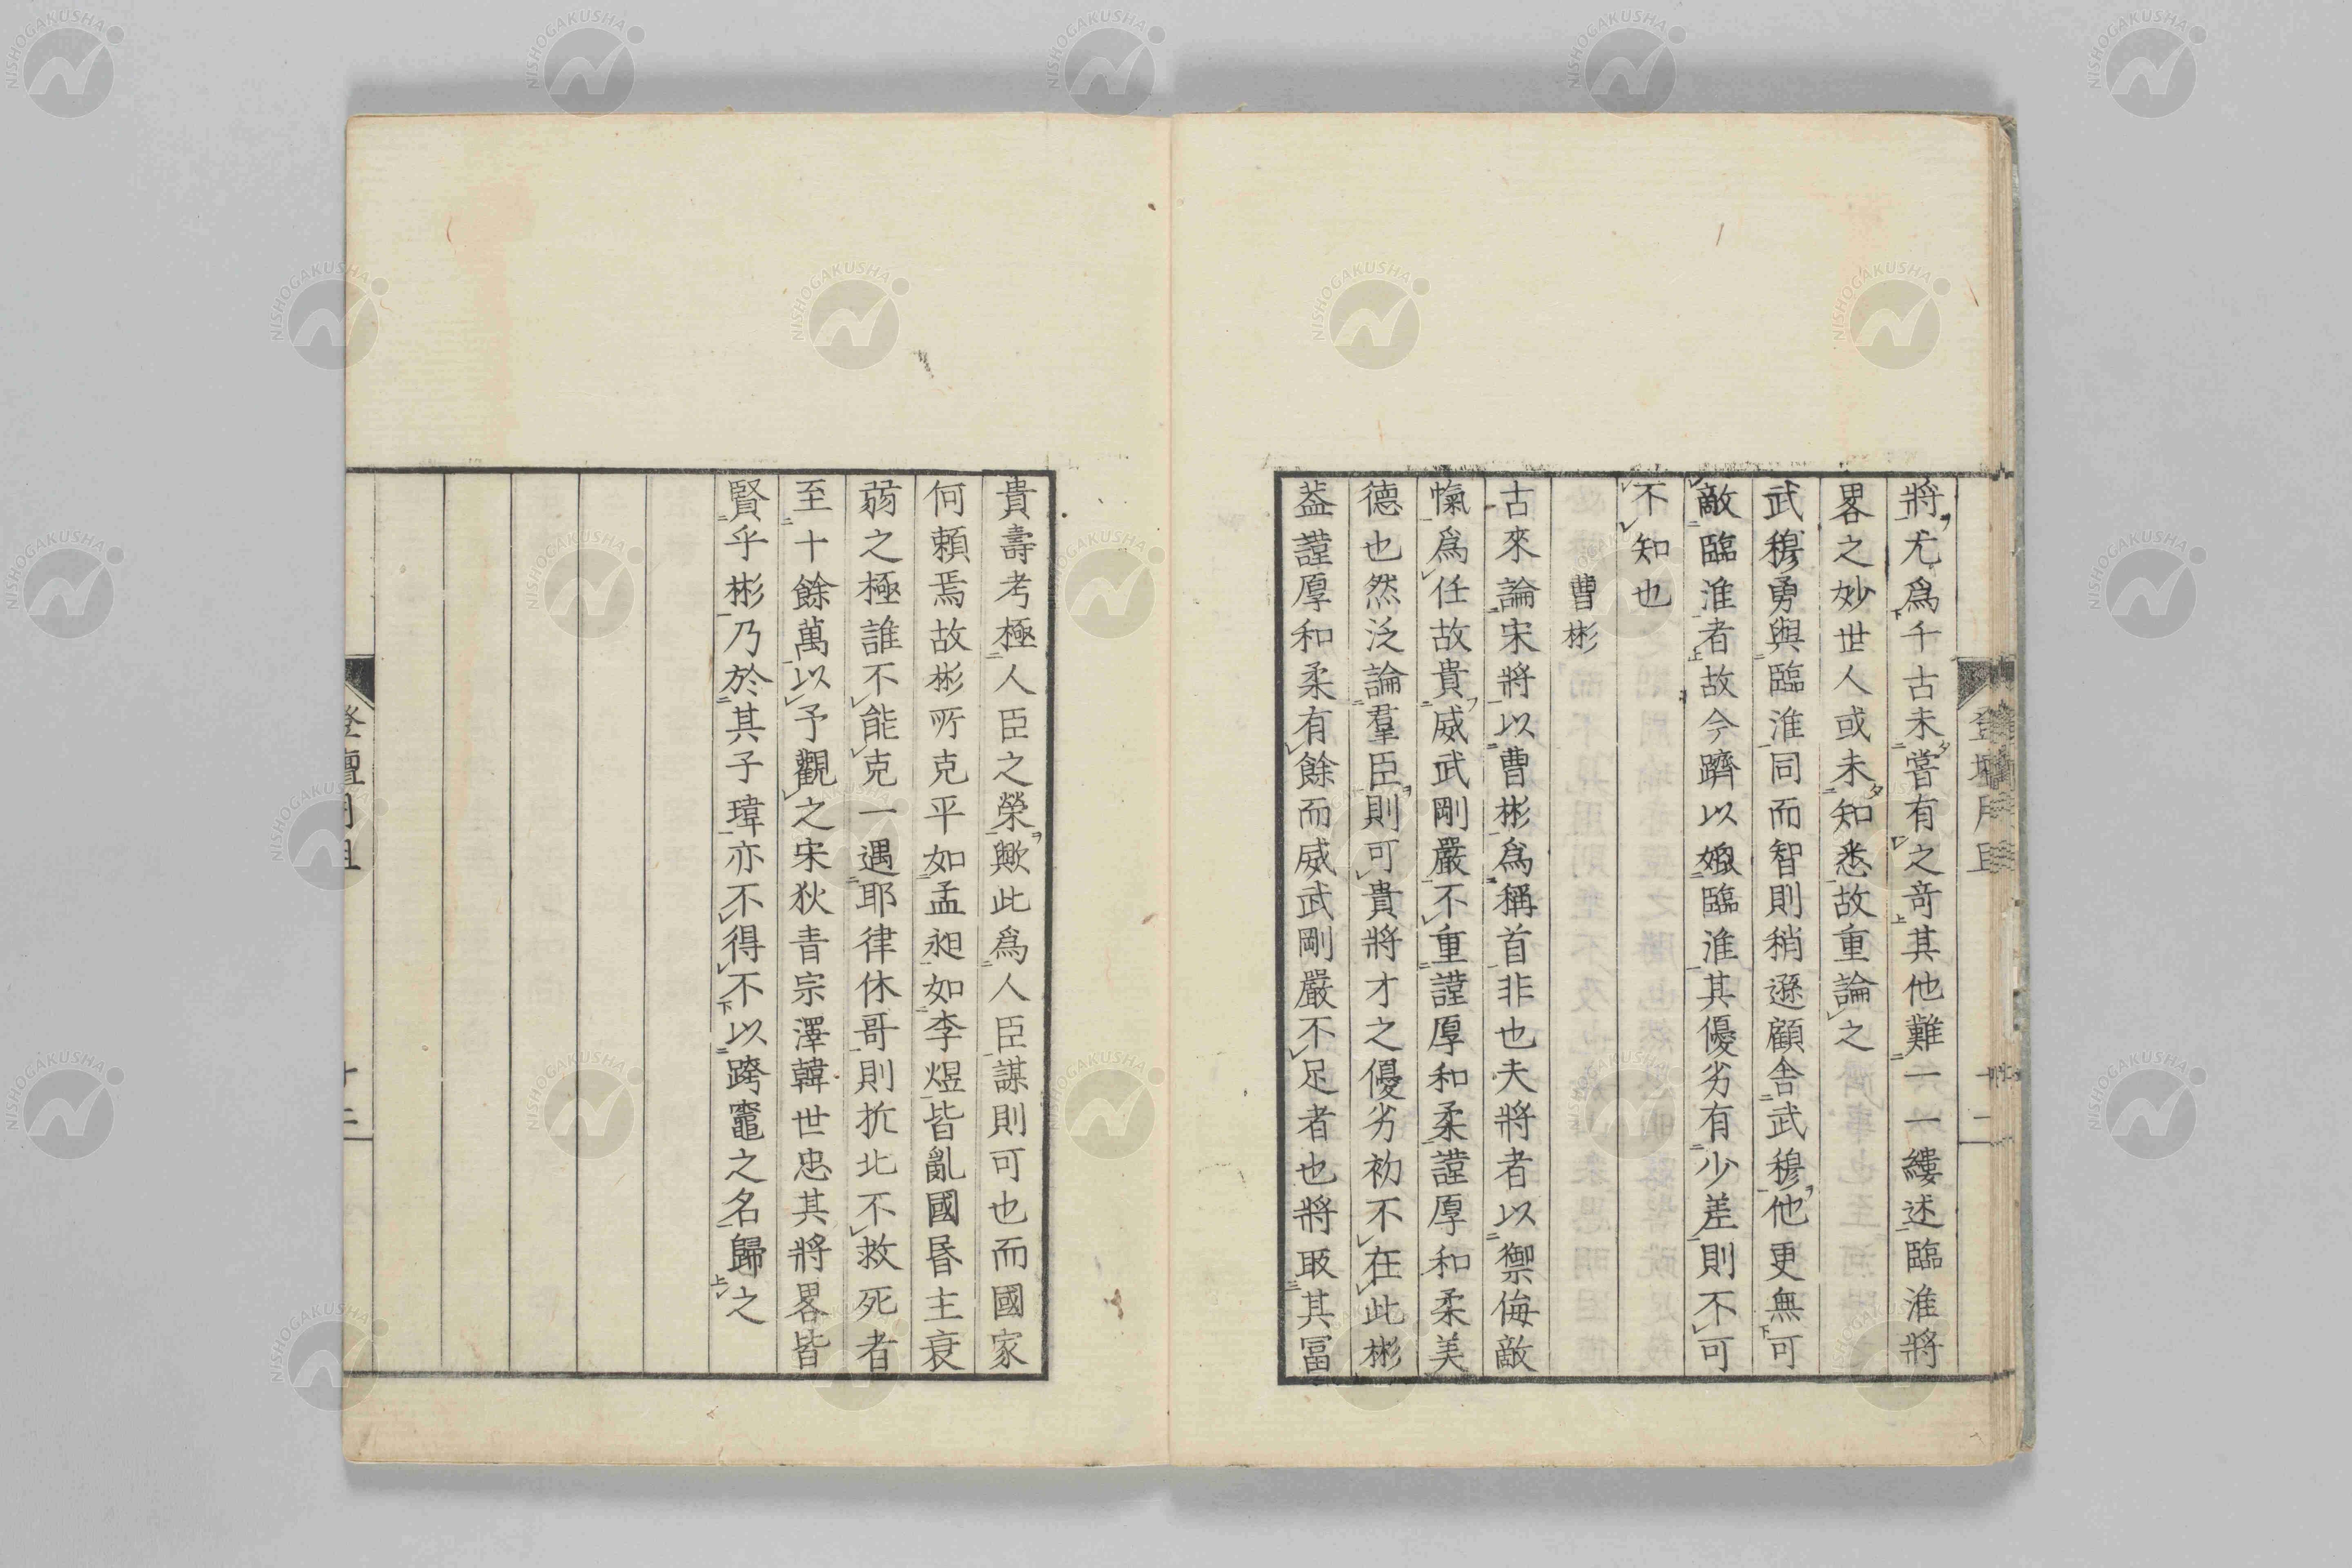 將尤爲千古未嘗有之奇其他難一一縷述臨淮將
畧之妙世人或未知悉故重論之
武穆勇與臨淮同而智則稍遜顧舍武穆他更無可
敵臨淮者故今躋以媲臨淮其優劣有少差則不可
不知也
曹彬
古來論宋將以曹彬爲稱首非也夫將者以禦侮敵
愾爲任故貴威武剛嚴不重謹厚和柔謹厚和柔美
德也然泛論羣臣則可貴將才之優劣初不在此彬
葢謹厚和柔有餘而威武剛嚴不足者也將㫷其冨
貴壽考極人臣之榮歟此爲人臣謀則可也而國家
何賴焉故彬所克平如孟昶如李煜皆亂國昬主衰
弱之極誰不能克一遇耶律休哥則折北不救死者
至十餘萬以予觀之宋狄青宗澤韓世忠其將畧皆
賢乎彬乃於其子瑋亦不得不以跨竈之名歸之
登壇月旦
十二
NISHOGAKUSHA